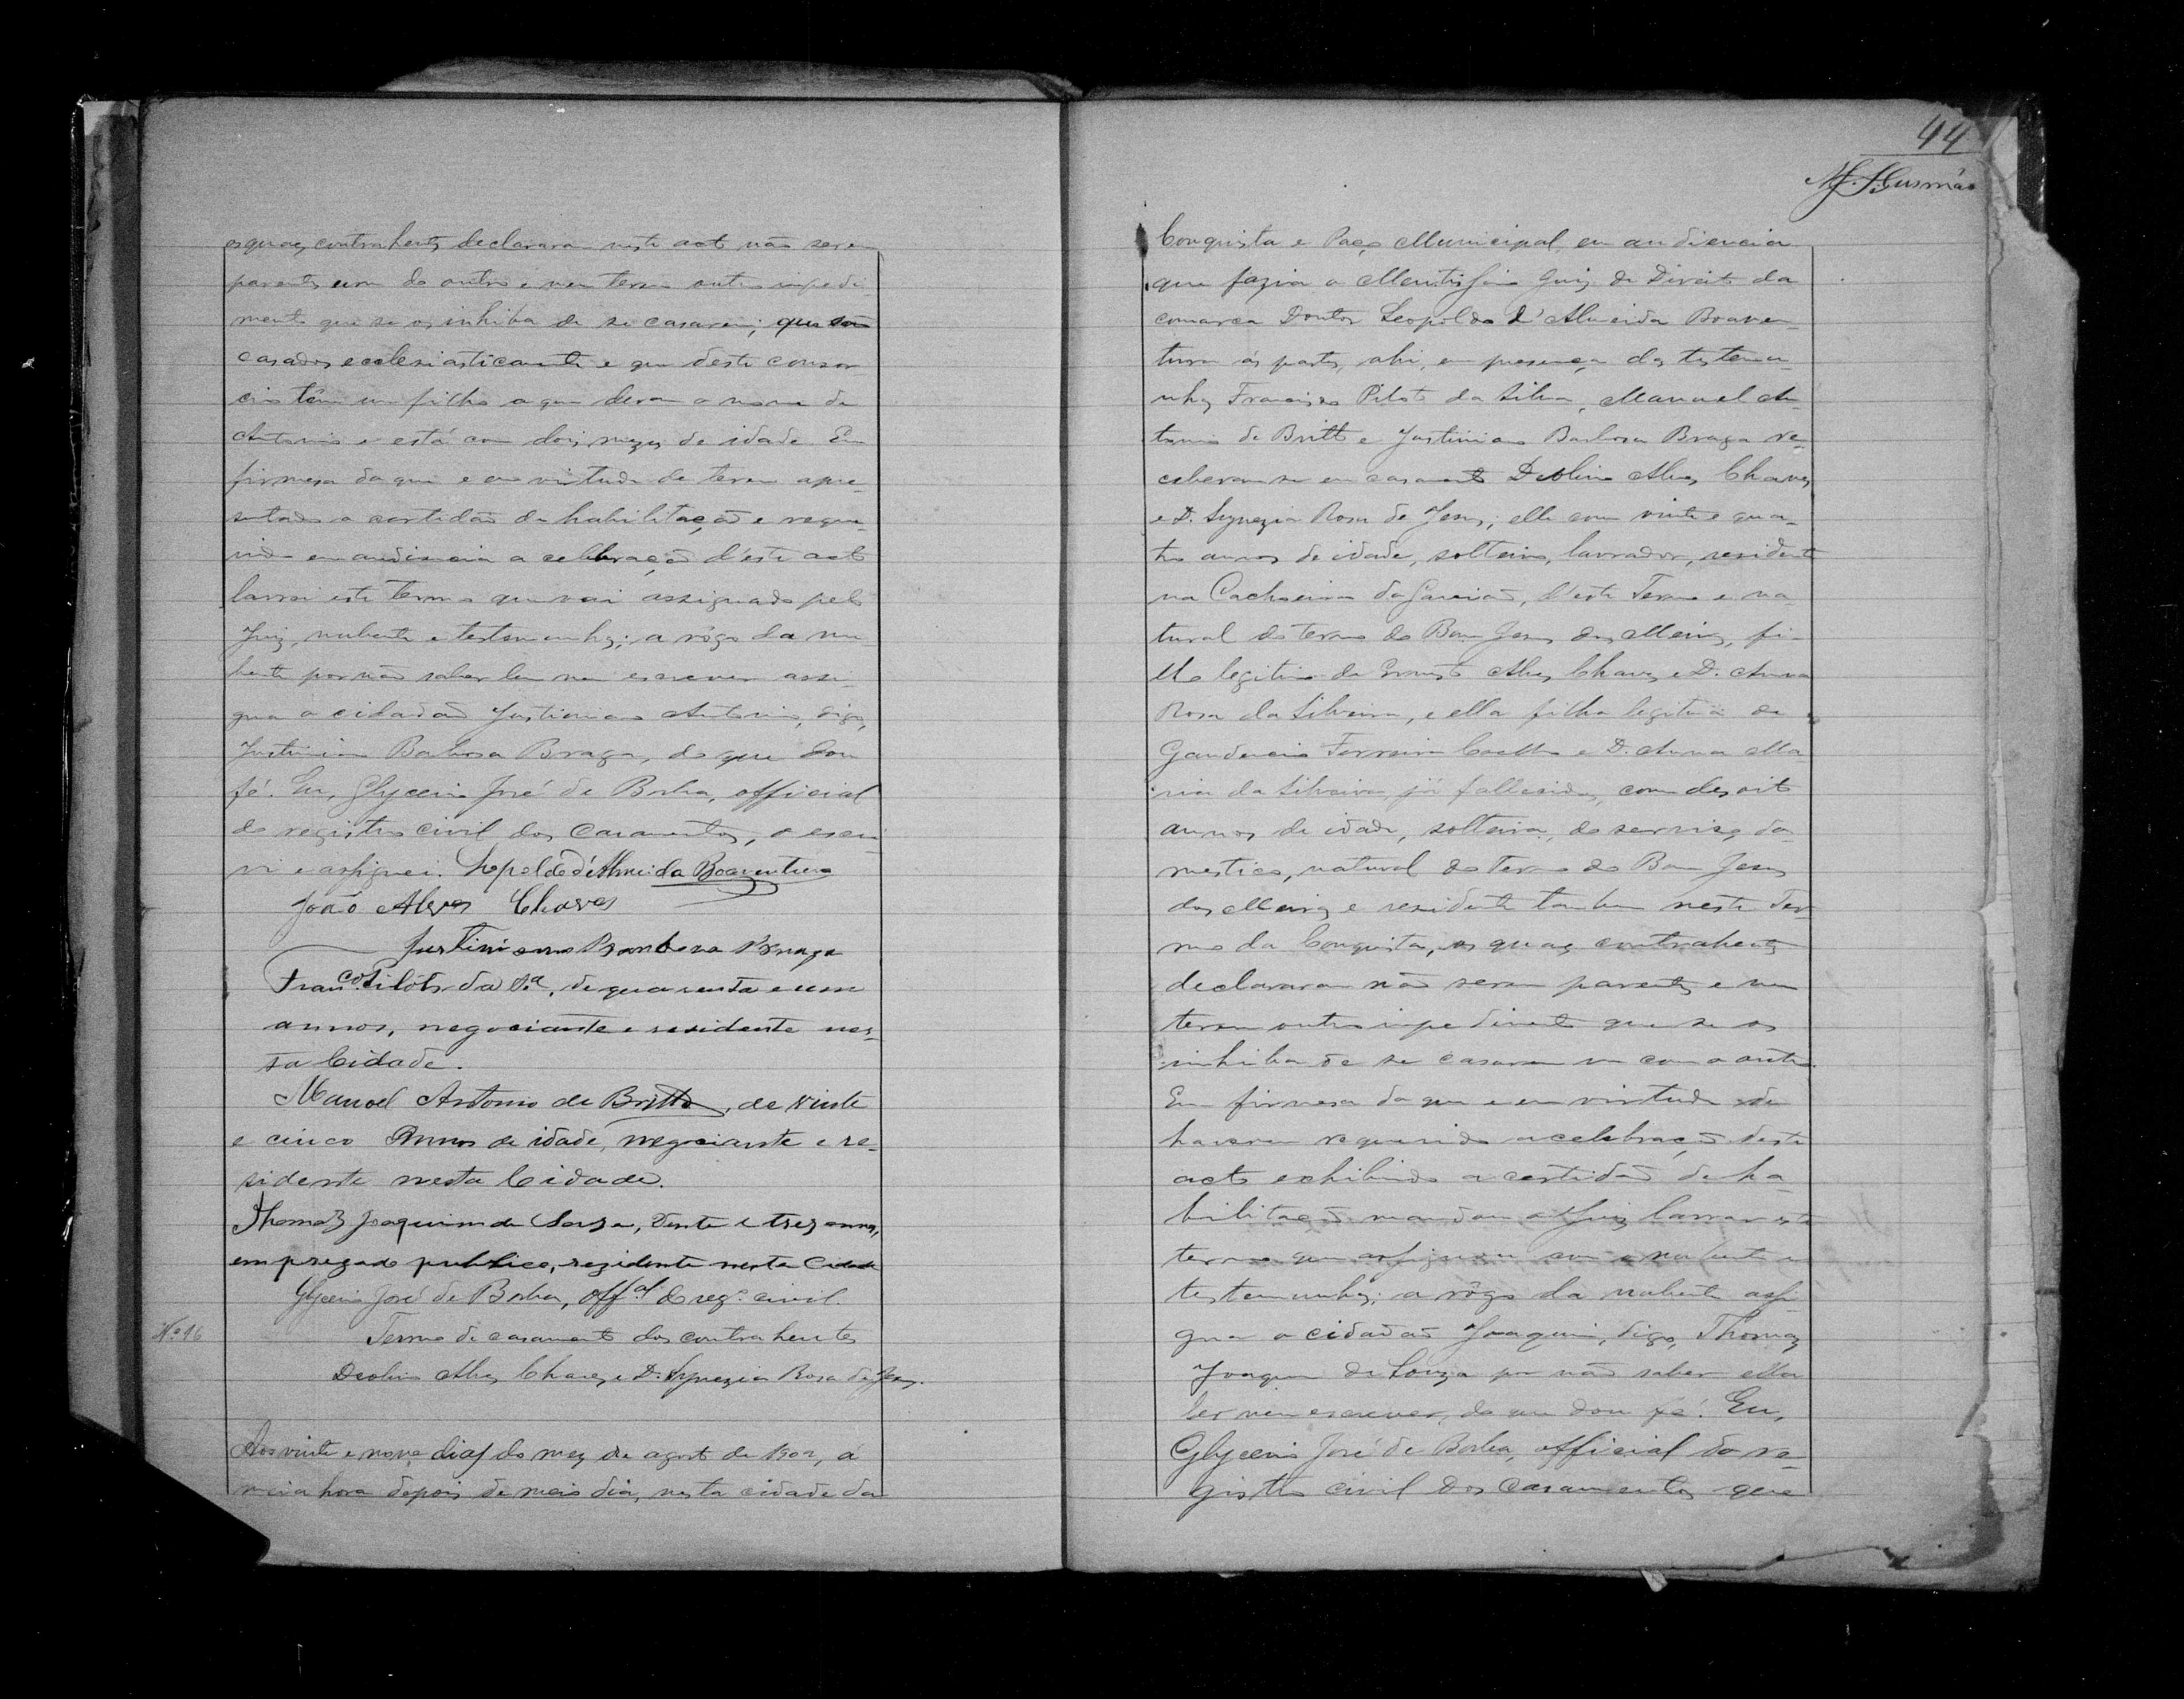 os quaes contrahentes declararam neste acto não serem
parentes um do outro e nem terem outro impedi-
mento que se os inhiba de se casarem; que são
casados ecclesiasticamente e que deste consor
cio têm um filho a quem deram o nome de
Antonio e está com dois mezes de idade. Em
firmesa do que e em virtude de terem apre-
sentado a certidão de habilitação e reque-
rido em audiencia a celebração d'este acto
lavrei este termo que vai assignado pelo
Juiz, nubente e testemunhas; a rôgo da nu-
bente por não saber ler nem escrever assi-
gna o cidadão Justiniano Antonio, digo,
Justiniano Barbosa Braga, do que dou
fé. Eu, Glycerio José de Borba, official
do registro civil dos casamentos, o escre-
vi e assignei. Leopoldo d'Almeida Boaventura
João Alves Chaves
Justiniano Barbosa Braga
Franco. Pilôto da Sa., de quarenta e um
annos, negociante e residente nes-
ta Cidade.
Manoel Antonio de Britto, de vinte
e cinco Annos de idade, negociante e re-
sidente nesta Cidade.
Thomaz Joaquim de Souza, vinte e trez annos,
empregado publico, rezidente nesta Cidade
Glycerio José de Borba, offal. do rego. civil.
Nº 16
Termo de casamento dos contrahentes
Deolino Alves Chaves e D. Rosa de Jesus.
Aos vinte e nove dias do mez de agosto de 1902, á
meia hora depois de meio dia, nesta cidade da
44
M. J. Gusmão
Conquista e Paço Municipal, em audiencia
que fazia o Meritissimo Juiz de Direito da
comarca Doutor Leopoldo d'Almeida Boaven-
tura ás partes, ahi, em presença das testemu-
nhas Francisco Pilôto da Silva, Manoel An-
tonio de Britto e Justiniano Barbosa Braga re-
ceberam-se em casamento Deolino Alves Chaves
e D. Rosa de Jesus; elle com vinte e qua-
tro annos de idade, solteiro, lavrador, residente
na Cachoeira, d'este Termo e na-
tural do termo do Bom Jesus dos Meiras, fi-
lho legitimo de Ernesto Alves Chaves e D. Anna
Rosa da Silveira, e ella filha legitima de
Gaudencio Ferreira Coelho e D. Anna Ma
ria da Silveira, já fallecidos, com desoito
annos de idade, solteira, do serviso do-
mestico, natural do termo do Bom Jesus
dos Meiras e residente tambem neste Ter-
mo da Conquista, os quaes contrahentes
declararam não serem parentes e nem
terem outro impedimento que se os
inhiba de se casarem um com o outro.
Em firmesa do que e em virtude de
haverem requerido a celebração deste
acto exhibindo a certidão de ha-
bilitação mandou o Juiz lavrar este
termo que assignou com o nubente e
testemunhas; a rôgo da nubente assi-
gna o cidadão Joaquim, digo, Thomaz
Joaquim de Souza por não saber ella
ler nem escrever, do que dou fé. Eu,
Glycerio José de Borba, official do re-
gistro civil dos casamentos que